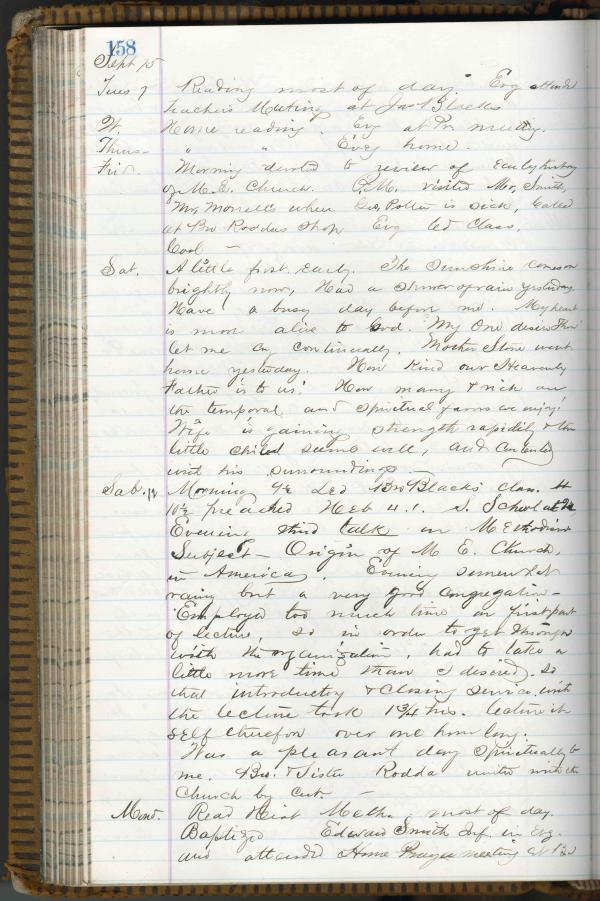 158
Sept 15
Tues 7 Reading most of day. Evg attended
teachers Meeting at Jas Blacks
W. Home reading. Evg at Pr meeting.
Thurs- " " Evey home.
Frid. Morning devoted to review of early history
of M.E. Church. P.M. visited Mrs, Smith,
Mrs Morrells where Geo, Potter is sick, Called
at Bro Roddas Shop Evg led Class,
Cool -
Sat. A little frost early. The Sunshine comes on
brightly now, Had a shower of rain yesterday,
Have a busy day before me. My heart
is more alive to God. My one desire Thou
let me cry continually. Mother Stone went
home yesterday. How kind our Heavenly
Father is to us! How many & rich are
the temporal and spiritual favors we enjoy!
Wife is gaining strength rapidly & the
little child seems well, and contented
with his surroundings.
Sab. Morning 9½ Led Bro Blacks class. At
10½ preached Heb 4.1. S. School at
Evening third talk on Methodism
Subject - Origin of M E. Church,
in America. Evening somewhat
rainy but a very good congregation -
Employed too much time on first part
of lecture, so in order to get through
with the organization, had to take a
little more time than I desired. So
that introductory & closing service with
the lecture took 1 3/4 hrs. lecture it
self therefore over one hour long.
Was a pleasant day spiritually to
me. Bro. & Sister Rodda united with the
Church by Cert. -
Mond. Read Hist Meth. most of day.
Baptized Edward Smith Inf. in evg.
and attended Home Prayer meeting at Bro